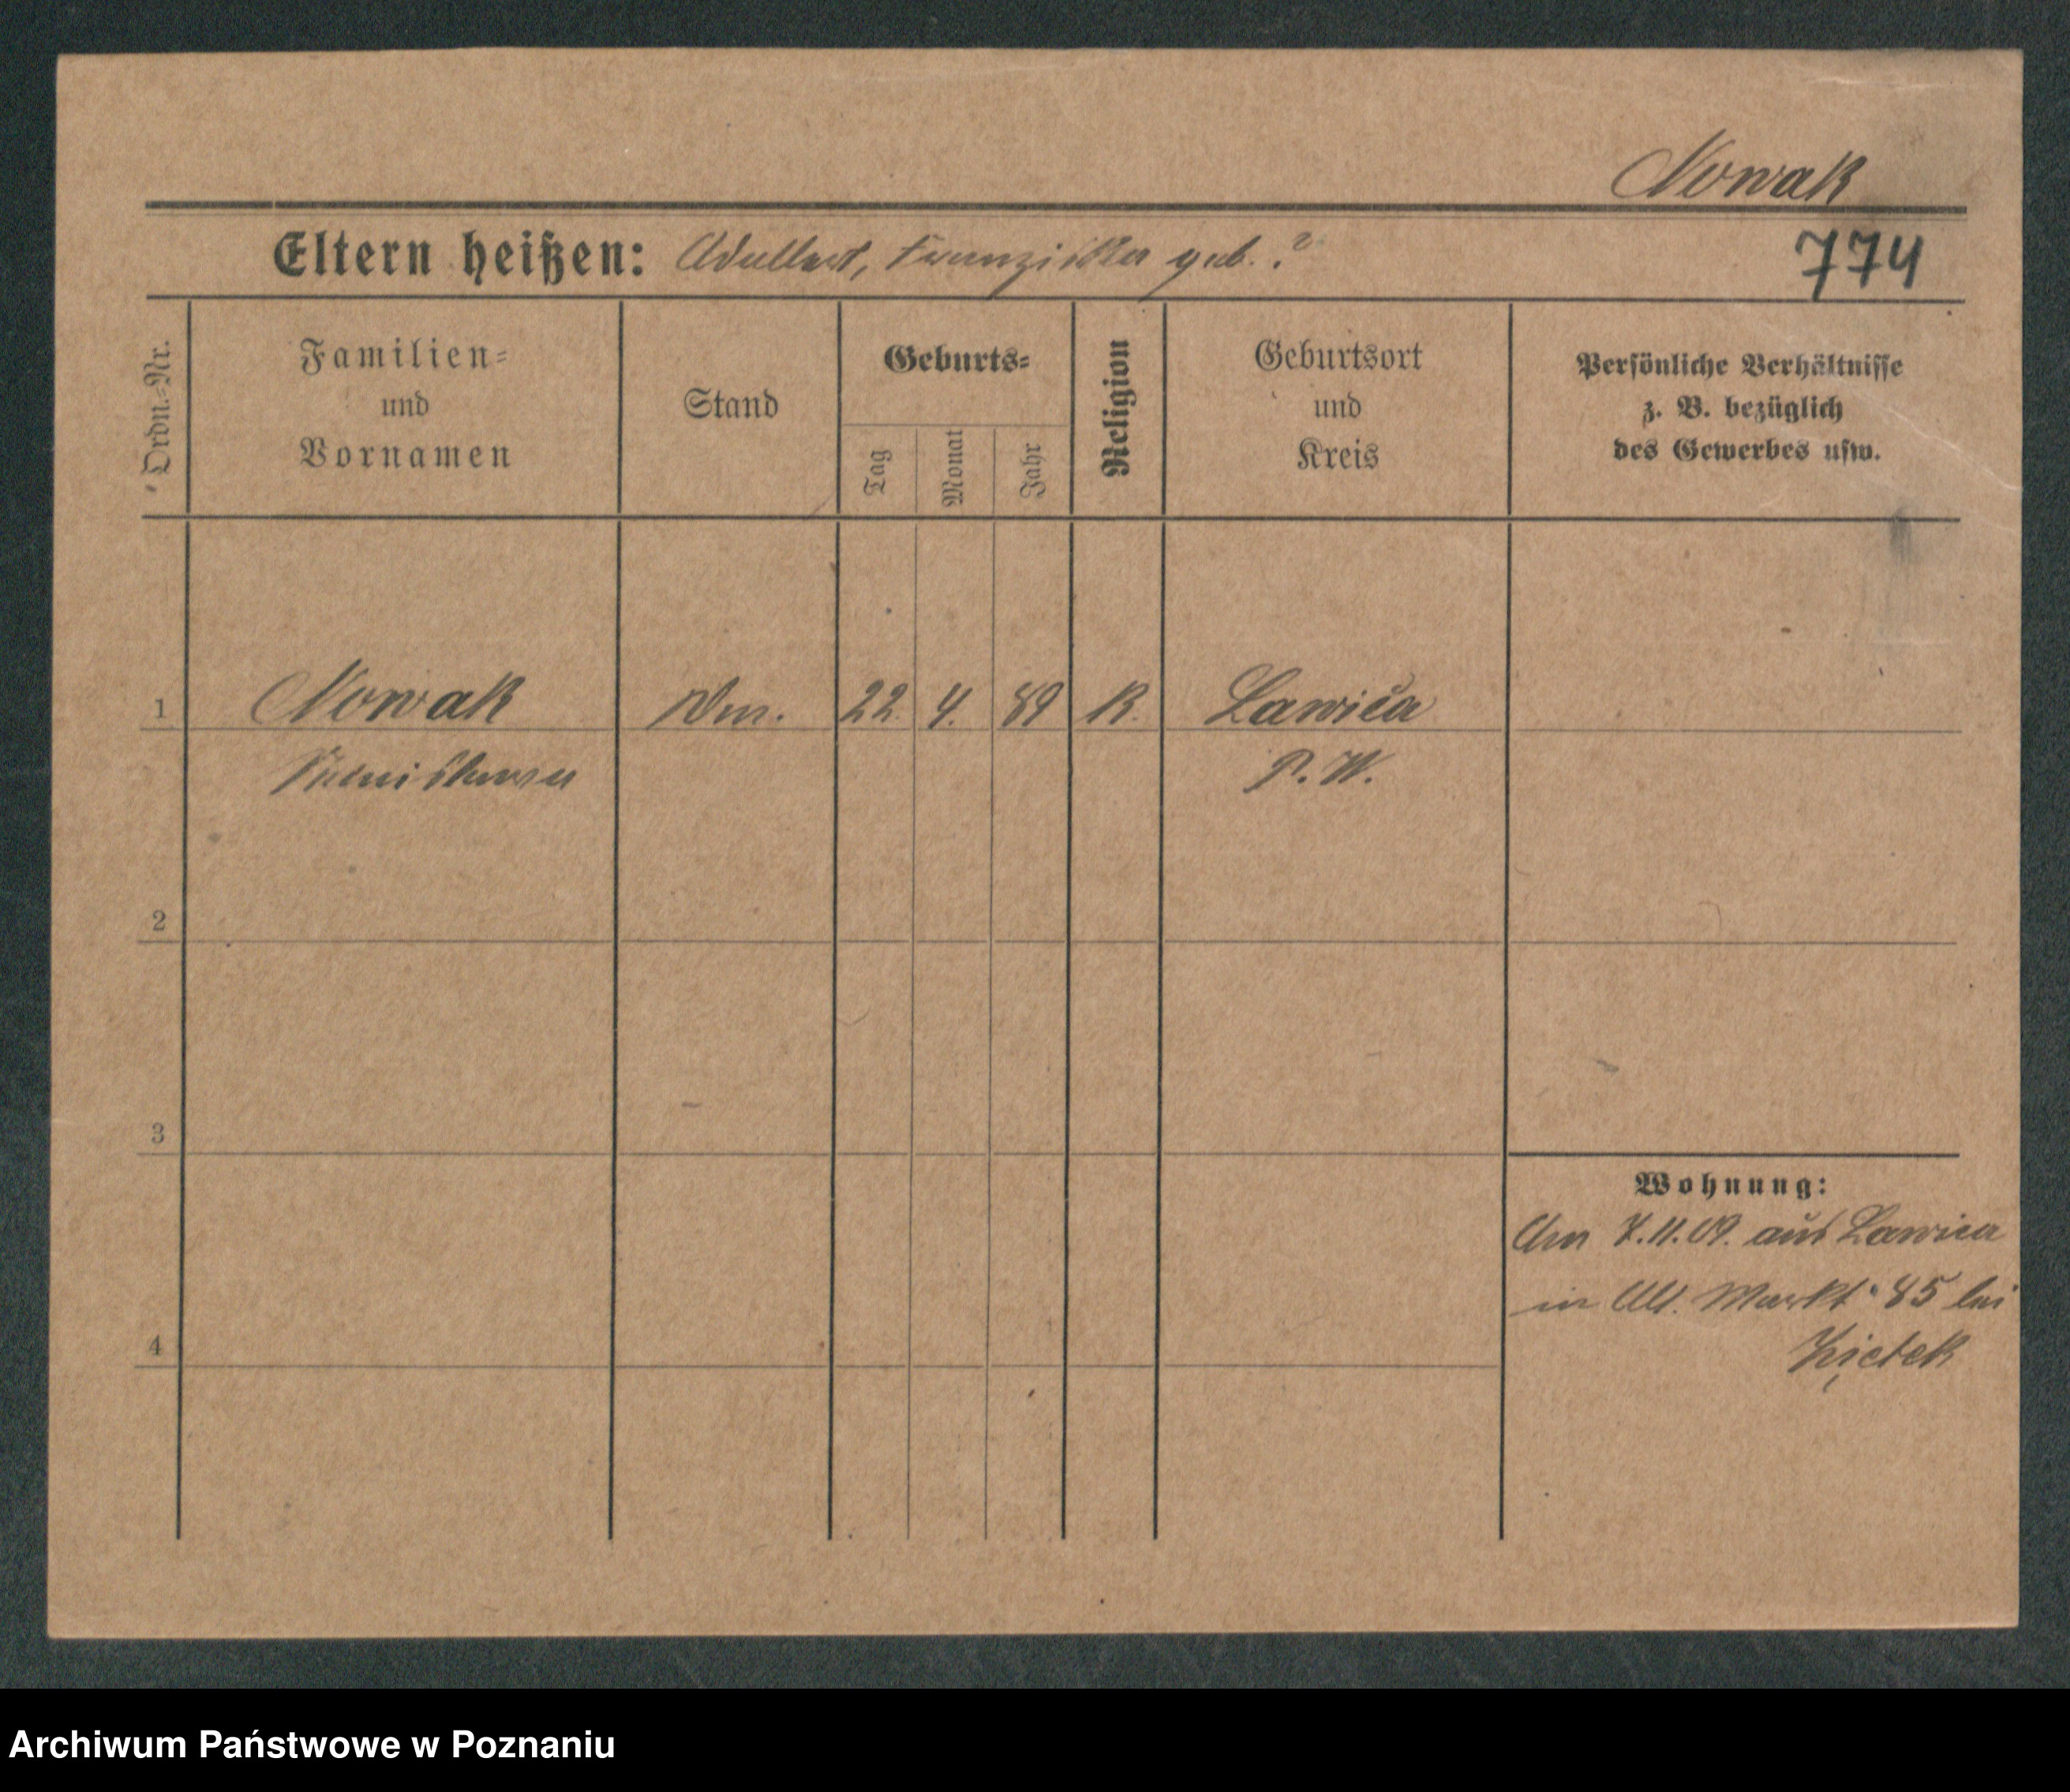 Nowak
Eltern heißen: Adalbert, Franziska geb. ?
774
Ordn.-Nr.
Familien-
und
Vornamen
Stand
Geburts-
Tag
Monat
Jahr
Religion
Geburtsort
und
Kreis
Persönliche Verhältnisse
z. B. bezüglich
des Gewerbes usw.
1 Nowak 22. 4. 89 K. Lawica
P. W.
2
3
4
Wohnung:
Am 7.11.09. aus Lawica
in Alt. Markt 85 bei